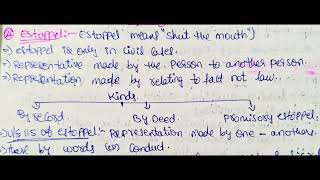 Estoppel:- Estoppel means "shut the mouth")
→) estoppel is only in civil cases.
→) Representative made by the person to another person.
→) Representation made by relating to fact not law..
Kinds.
By record. By Deed. Promissory estoppel.
→) U/s 115 of estoppel:- Representation made by one - another.
→) there by words (or) conduct.